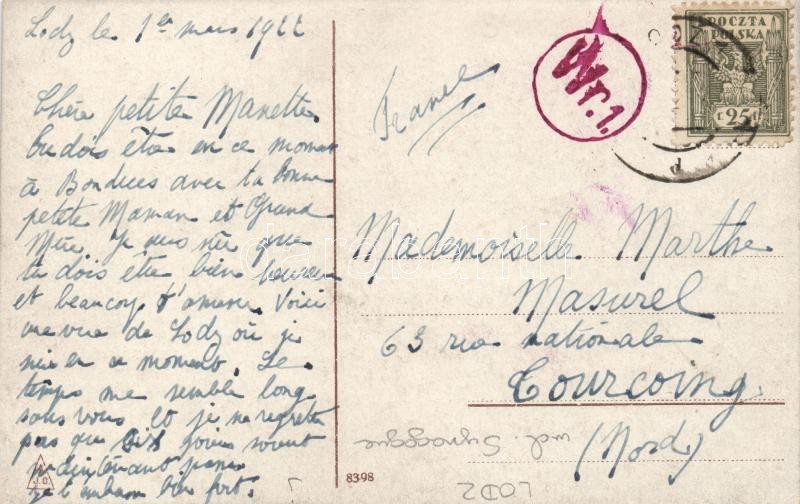 Lodz le 1er mars 1922
Chère petite Manette.
Tu dois être en ce moment
à Bondues avec ta bonne
petite Maman et Grand
Mère. Je suis sûr que
tu dois être bien heureuse
et beaucoup t'amuser. Voici
une vue de Lodz où je
suis en ce moment. Le
temps me semble long
sans vous et je ne regrette
pas que
maintenant
je t'embrasse bien fort.
J.O.
8398
France
Wr.1.
POCZTA
POLSKA
f. 25 f.
Mademoiselle Marthe
Masurel
63 rue nationale
Tourcoing
(Nord)
incl. Synagogue
LODZ